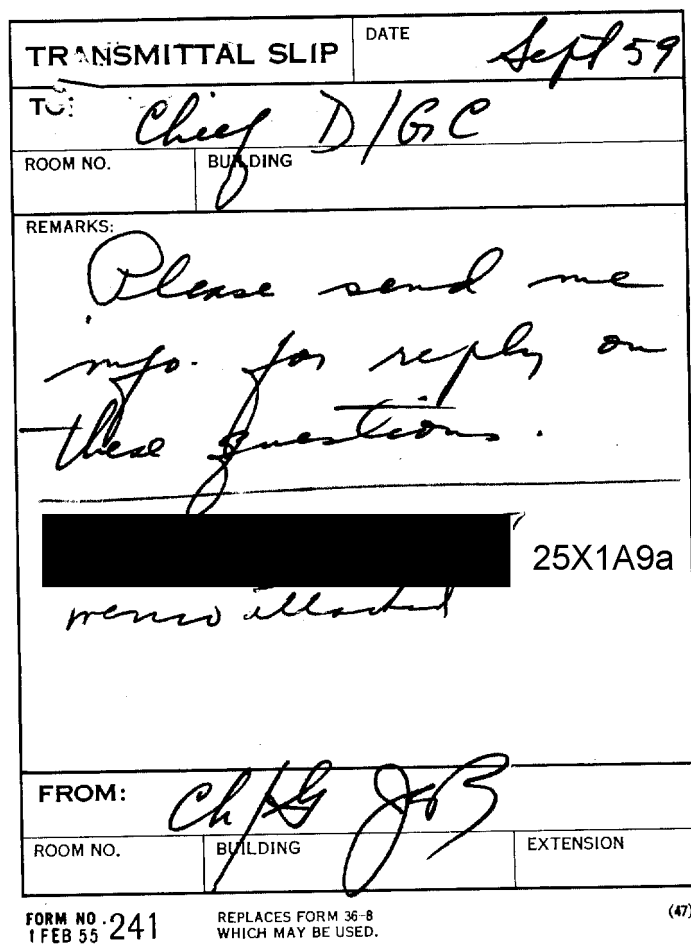 TRANSMITTAL SLIP
DATE
Sept 59
TO:
Chief D/GC
ROOM NO.
BUILDING
REMARKS:
Please send me
info. for reply on
these questions.
25X1A9a
memo attached
FROM:
Ch/G JB
ROOM NO.
BUILDING
EXTENSION
FORM NO. 241
1 FEB 55
REPLACES FORM 36-8
WHICH MAY BE USED.
(47)